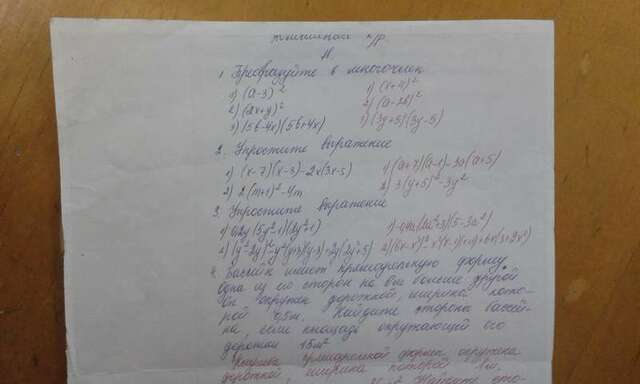 к/р
1. Преобразуйте в многочлен
1) (a-3)² 1) (x+4)²
2) (2x+y)² 2) (a-2b)²
3) (5b-4x)(5b+4x) 3) (3y+5)(3y-5)
2. Упростите выражение
1) (x-7)(x-3)-2x(3x-5) 1) (a+7)(a-1)-3a(a+5)
2) 2(m+1)²-4m 2) 3(y+5)²-3y²
3. Упростите выражение
1) 0,2y(5y²-1)(2y²+1) 1) -0,4a(2a²+3)(5-3a²)
2) (y²-2y)²-y²(y+3)(y-3)+2y(2y²+5) 2) (6x-x²)²-x²(x-1)(x+1)+6x(3+2x²)
4. Бассейн имеет прямоугольную форму,
одна из его сторон на 6м больше другой
Он окружен дорожкой, шириной кото-
рой 0,5м. Найдите стороны бассей-
на, если площадь окружающей его
дорожки 15м²
Клумба прямоугольной формы окружена
дорожкой ширина которой 1м,